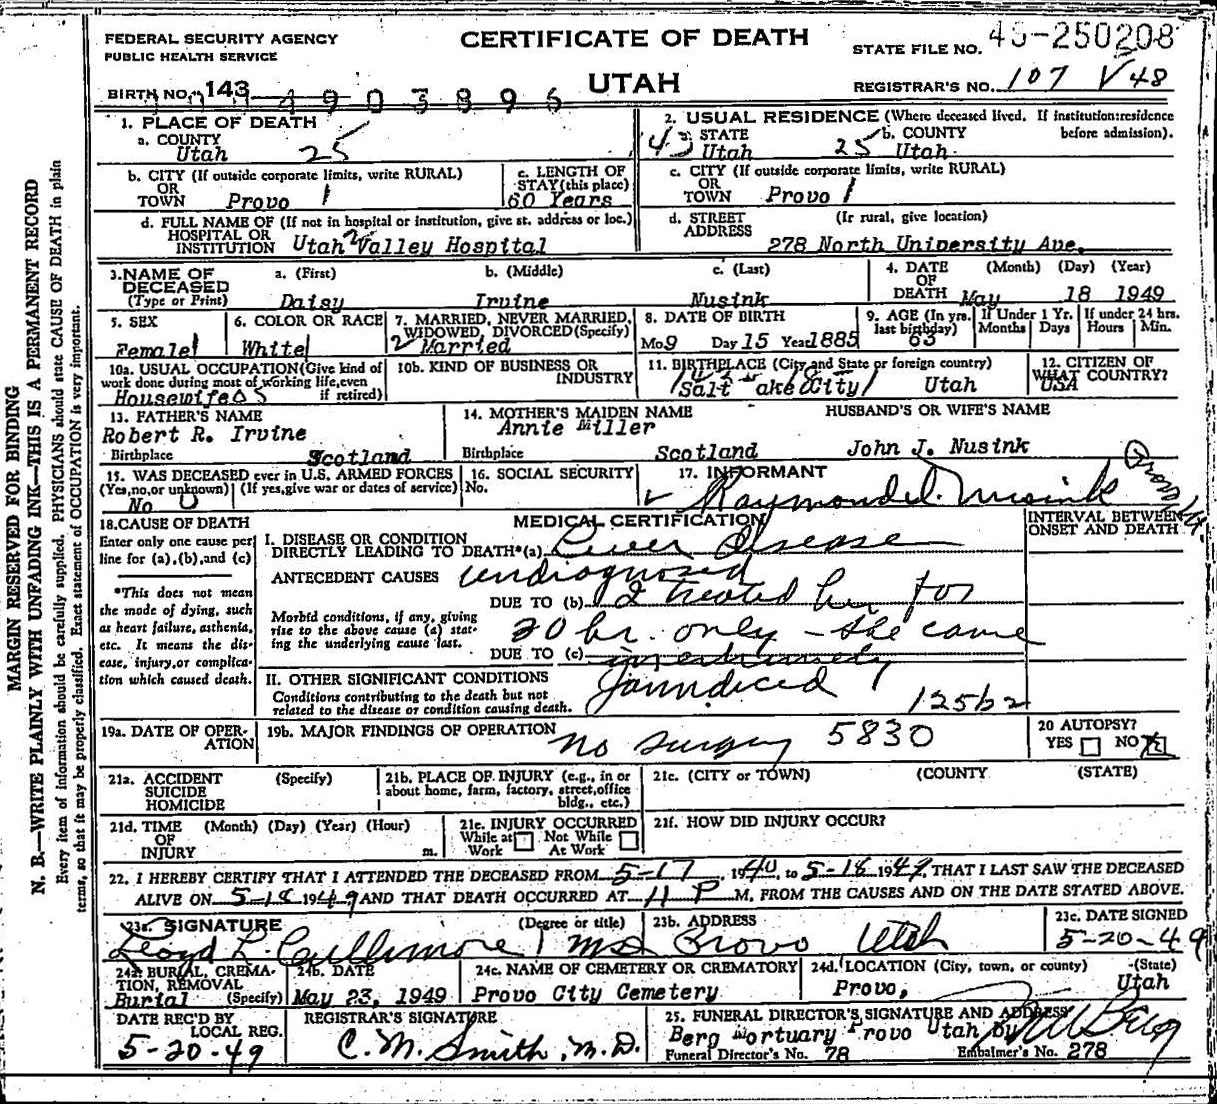 FEDERAL SECURITY AGENCY
PUBLIC HEALTH SERVICE
CERTIFICATE OF DEATH
UTAH
STATE FILE NO. 49-250208
REGISTRAR'S NO. 107 V 48
BIRTH NO. 143
4903896
1. PLACE OF DEATH
a. COUNTY
Utah 25
2. USUAL RESIDENCE (Where deceased lived. If institution:residence before admission).
a. STATE
43 Utah
b. COUNTY
25 Utah
b. CITY (If outside corporate limits, write RURAL)
OR
TOWN Provo 1
c. LENGTH OF
STAY(this place)
60 Years
c. CITY (If outside corporate limits, write RURAL)
OR
TOWN Provo 1
d. FULL NAME OF (If not in hospital or institution, give st. address or loc.)
HOSPITAL OR
INSTITUTION Utah Valley Hospital
d. STREET (If rural, give location)
ADDRESS 278 North University Ave.
3.NAME OF
DECEASED
(Type or Print)
a. (First)
Daisy
b. (Middle)
Irvine
c. (Last)
Nusink
4. DATE (Month) (Day) (Year)
OF
DEATH May 18 1949
5. SEX
Female
6. COLOR OR RACE
White
7. MARRIED, NEVER MARRIED,
WIDOWED, DIVORCED(Specify)
2 Married
8. DATE OF BIRTH
Mo 9 Day 15 Year 1885
9. AGE (In yrs. last birthday)
63
If Under 1 Yr.
Months Days
If under 24 hrs.
Hours Min.
10a. USUAL OCCUPATION(Give kind of
work done during most of working life,even
if retired)
Housewife 05
10b. KIND OF BUSINESS OR
INDUSTRY
11. BIRTHPLACE (City and State or foreign country)
Salt Lake City Utah
12. CITIZEN OF
WHAT COUNTRY?
USA
13. FATHER'S NAME
Robert R. Irvine
Birthplace Scotland
14. MOTHER'S MAIDEN NAME
Annie Miller
Birthplace Scotland
HUSBAND'S OR WIFE'S NAME
John J. Nusink
15. WAS DECEASED ever in U.S. ARMED FORCES
(Yes,no,or unknown) (If yes,give war or dates of service)
No 0
16. SOCIAL SECURITY
No.
17. INFORMANT
Raymond J. Nusink
Provo, Ut.
18.CAUSE OF DEATH
Enter only one cause per
line for (a),(b),and (c)
*This does not mean
the mode of dying, such
as heart failure, asthenia,
etc. It means the dis-
ease, injury,or complica-
tion which caused death.
MEDICAL CERTIFICATION
INTERVAL BETWEEN
ONSET AND DEATH
I. DISEASE OR CONDITION
DIRECTLY LEADING TO DEATH*(a) Liver Disease
ANTECEDENT CAUSES undiagnosed
DUE TO (b) I treated her for
Morbid conditions, if any, giving
rise to the above cause (a) stat-
ing the underlying cause last.
20 hr. only - she came
DUE TO (c) in extremely
II. OTHER SIGNIFICANT CONDITIONS
Conditions contributing to the death but not
related to the disease or condition causing death.
Jaundiced
125b2
19a. DATE OF OPER-
ATION
19b. MAJOR FINDINGS OF OPERATION
no surgery 5830
20 AUTOPSY?
YES NO X
21a. ACCIDENT
SUICIDE
HOMICIDE
(Specify)
21b. PLACE OF INJURY (e.g., in or
about home, farm, factory, street,office
bldg., etc.)
21c. (CITY or TOWN) (COUNTY) (STATE)
21d. TIME (Month) (Day) (Year) (Hour)
OF
INJURY m.
21e. INJURY OCCURRED
While at Work Not While At Work
21f. HOW DID INJURY OCCUR?
22. I HEREBY CERTIFY THAT I ATTENDED THE DECEASED FROM 5-17, 1940, to 5-18 1949, THAT I LAST SAW THE DECEASED
ALIVE ON 5-18 1949 AND THAT DEATH OCCURRED AT 11 P M, FROM THE CAUSES AND ON THE DATE STATED ABOVE.
23a. SIGNATURE (Degree or title)
Lloyd L. Cullimore MD
23b. ADDRESS
Provo Utah
23c. DATE SIGNED
5-20-49
24a. BURIAL, CREMA-
TION, REMOVAL
Burial (Specify)
24b. DATE
May 23, 1949
24c. NAME OF CEMETERY OR CREMATORY
Provo City Cemetery
24d. LOCATION (City, town, or county) (State)
Provo, Utah
DATE REC'D BY
LOCAL REG.
5-20-49
REGISTRAR'S SIGNATURE
C. M. Smith, M.D.
25. FUNERAL DIRECTOR'S SIGNATURE AND ADDRESS
Berg Mortuary Provo Utah by
Funeral Director's No. 78 Embalmer's No. 278
MARGIN RESERVED FOR BINDING
N. B.—WRITE PLAINLY WITH UNFADING INK—THIS IS A PERMANENT RECORD
Every item of information should be carefully supplied. PHYSICIANS should state CAUSE OF DEATH in plain
terms, so that it may be properly classified. Exact statement of OCCUPATION is very important.